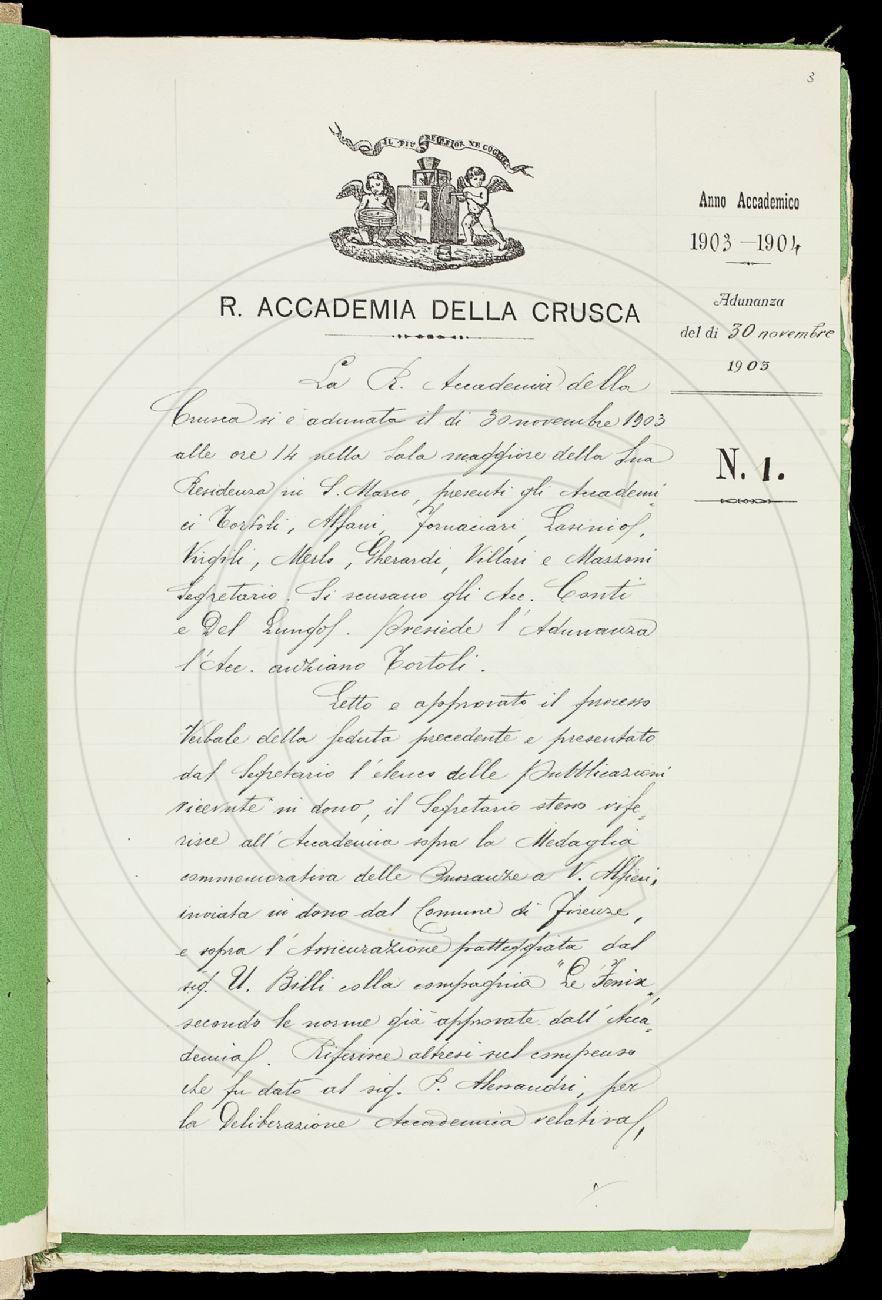 3
IL PIÙ BEL FIOR NE COGLIE
Anno Accademico
1903-1904
Adunanza
del dì 30 novembre
1903
N. 1.
R. ACCADEMIA DELLA CRUSCA
La R. Accademia della
Crusca si è adunata il dì 30 novembre 1903
alle ore 14 nella Sala maggiore della Sua
Residenza in S. Marco, presenti gli Accademi-
ci Tortoli, Alfani, Fornaciari, Lasinio,
Virgili, Merlo, Gherardi, Villari e Mazzoni
Segretario. Si scusano gli Acc. Conti
e Del Lungo. Presiede l'Adunanza
l'Acc. anziano Tortoli.
Letto e approvato il processo
Verbale della seduta precedente e presentato
dal Segretario l'elenco delle Pubblicazioni
ricevute in dono, il Segretario stesso rife-
risce all'Accademia sopra la Medaglia
commemorativa delle Onoranze a V. Alfieri,
inviata in dono dal Comune di Firenze,
e sopra l'Assicurazione patteggiata dal
sig. U. Billi colla compagnia "Le Fenix"
secondo le norme già approvate dall'Acca-
demia. Riferisce altresì sul compenso
che fu dato al sig. P. Alessandri, per
la Deliberazione Accademica relativa,